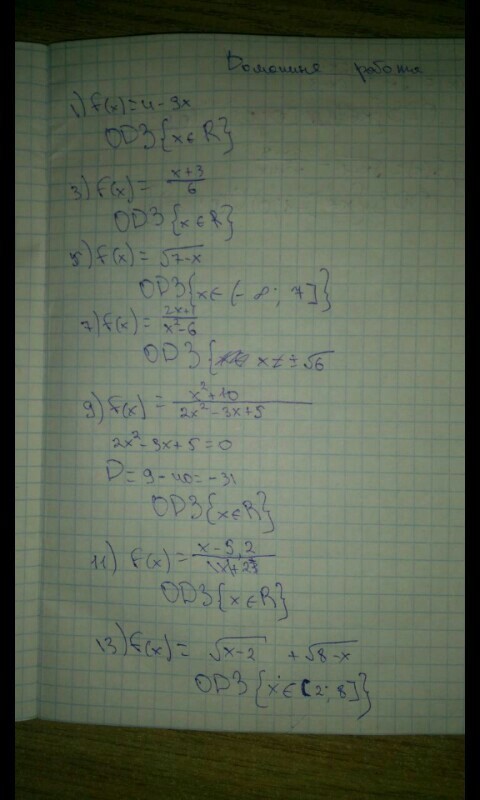 Домашня работа
1) f(x)=4-3x
ОДЗ{x∈R}
3) f(x)= x+3/6
ОДЗ{x∈R}
5) f(x)= √7-x
ОДЗ{x∈(-∞; 7]}
7) f(x)= 2x+1/x²-6
ОДЗ{ x≠±√6
9) f(x)= x²+10/2x²-3x+5
2x²-3x+5=0
D=9-40=-31
ОДЗ{x∈R}
11) f(x)= x-5,2/|x|+23
ОДЗ{x∈R}
13) f(x)= √x-2 +√8-x
ОДЗ{x∈[2; 8]}